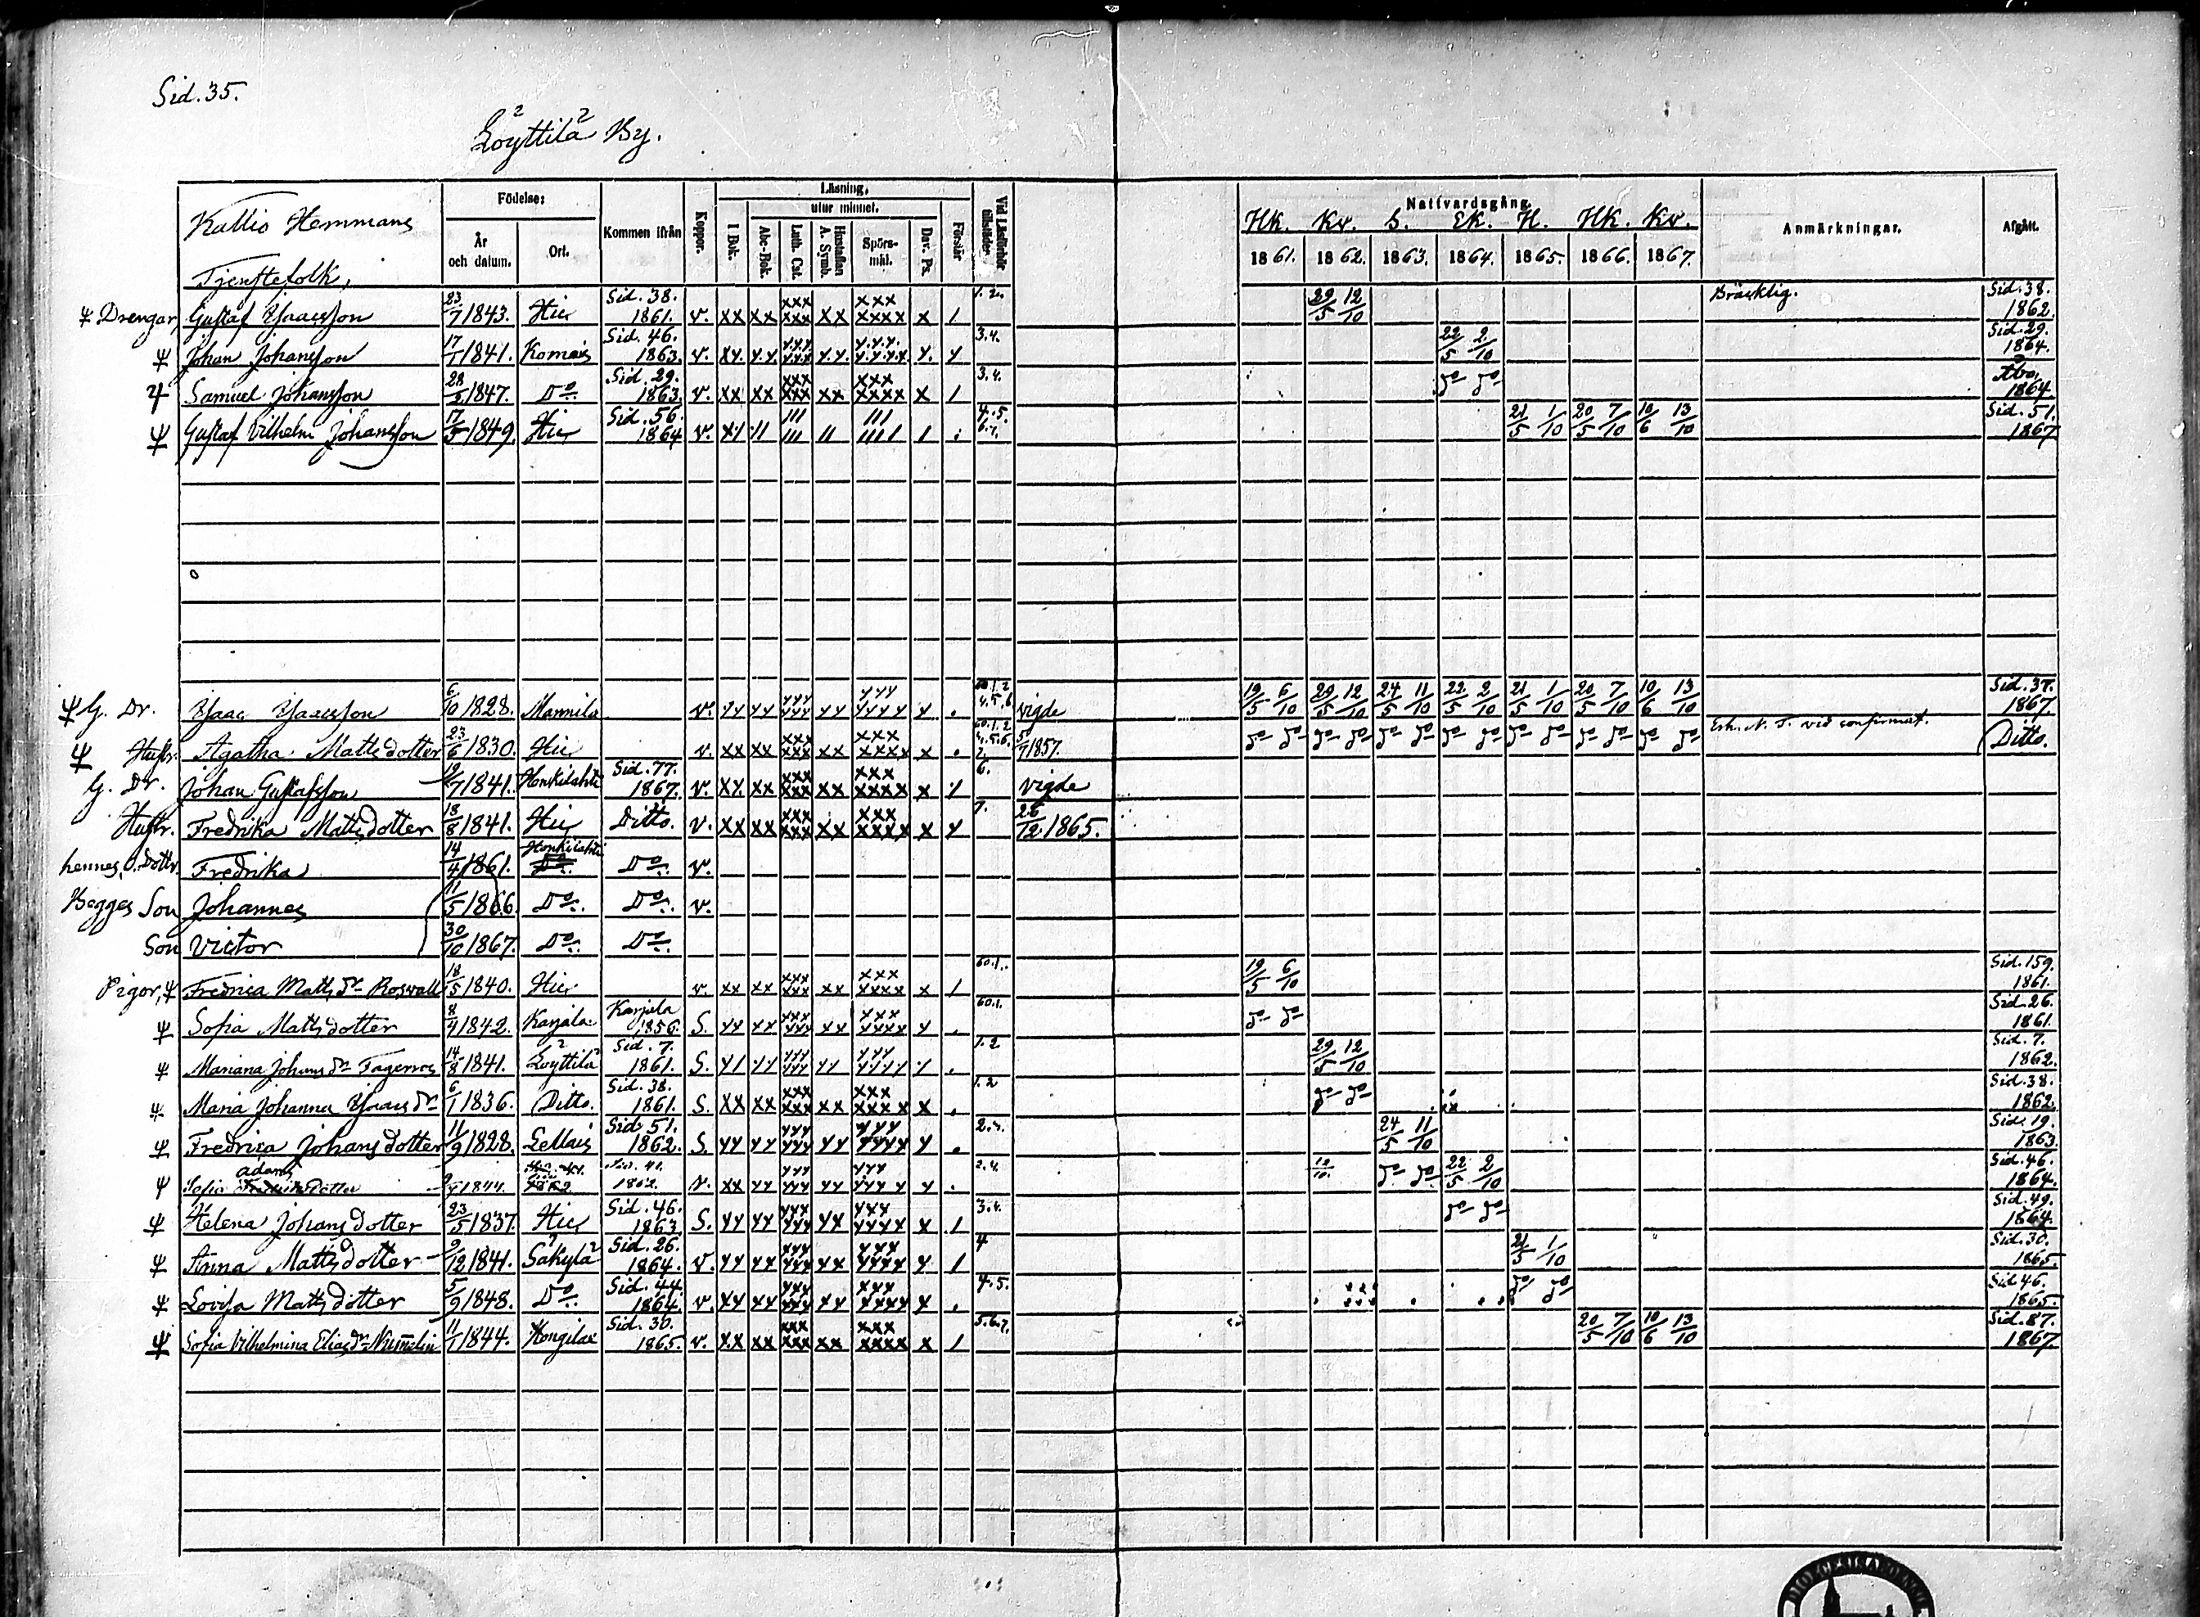 Sid. 35.
Löyttilä By.
Kallio Hemmans
Tjenstefolk,
Födelse:
År och datum.
Ort.
Kommen ifrån
Koppor.
Läsning,
utur minnet.
I Bok.
Abc-Bok.
Luth. Cat.
Hustaflan A. Symb.
Spörs-mål.
Dav. Ps.
Förstår
Vid Läsförhör tillstädes.
Nattvardsgång.
Hk. Kv. S. Ek. H. Hk. Kv.
1861. 1862. 1863. 1864. 1865. 1866. 1867.
Anmärkningar.
Afgått.
Drengar, Gustaf Isaacsson 23/7 1843. Hic Sid. 38. 1861. v. xx xx xxx xxx xx xxx xxxx x / 1. 2. 29/5 12/10 Bräcklig. Sid. 38. 1862.
Johan Johansson 17/1 1841. Sid. 46. 1863. v. 3. 4. 22/5 2/10 Sid. 29. 1864.
Samuel Johansson 28/5 1847. Do Sid. 29. 1863. v. xx xx xxx xxx xx xxx xxxx x / 3. 4. do do Åbo, 1864.
Gustaf Vilhelm Johansson 17/5 1849. Hic Sid. 56. 1864 v. x/ // /// /// // /// //// / 4. 5. 6. 7. 21/5 1/10 20/5 7/10 10/6 13/10 Sid. 51. 1867
G. Dr. Isaac Isaacsson 6/10 1828. Mannila v. 60. 1. 2 4. 5. 6 vigde 19/5 6/10 29/5 12/10 24/5 11/10 22/5 2/10 21/5 1/10 20/5 7/10 10/6 13/10 Sid. 37. 1867.
Hustr. Agatha Mattsdotter 23/6 1830. Hic v. xx xx xxx xxx xx xxx xxxx x 60. 1. 2 4. 5. 6. 7. 5/7 1857. do do do do do do do do do do do do do do Erh. N. T. vid confirmat. Ditto.
G. Dr. Johan Gustafsson 19/7 1841. Honkilahti Sid. 77. 1867. v. xx xx xxx xxx xx xxx xxxx x 6. vigde
Hustr. Fredrika Mattsdotter 18/8 1841. Hic Ditto. v. xx xx xxx xxx xx xxx xxxx x 7. 26/12 1865.
hennes O. Dotter. Fredrika 14/4 1861. Honkilahti Do Do v.
Begges Son Johannes 11/5 1866. Do Do v.
Son Victor 30/10 1867. Do Do
Pigor, Fredrica Matts dr Roswall 18/5 1840. Hic v. xx xx xxx xxx xx xxx xxxx x / 60. 1. 19/5 6/10 Sid. 159. 1861.
Sofia Mattsdotter 8/4 1842. Karjala Karjala 1856. S. 60. 1. do do Sid. 26. 1861.
Mariana Johans dr 14/8 1841. Löyttilä Sid. 7. 1861. S. 1. 2 29/5 12/10 Sid. 7. 1862.
Maria Johanna Isaacs dr 6/1 1836. Ditto. Sid. 38. 1861. S. xx xx xxx xxx xx xxx xxxx x 1. 2 do do Sid. 38. 1862.
Fredrica Johansdotter 11/9 1828. Lellais Sid. 51. 1862. S. 2. 3. 24/5 11/10 Sid. 19. 1863.
Sofia Adams dotter 1844. Sid. 41. 1862. v. 2. 4. 12/10. do do 22/5 2/10 Sid. 46. 1864.
Helena Johansdotter 23/5 1837. Hic Sid. 46. 1863. S. 3. 4. do do Sid. 49. 1864.
Anna Mattsdotter 9/12 1841. Säkylä Sid. 26. 1864. v. 4 21/5 1/10 Sid. 30. 1865.
Lovisa Mattsdotter 5/9 1848. Do Sid. 44. 1864. v. 4. 5. do do Sid 46. 1865.
Sofia Vilhelmina Elias dr Nummelin 11/1 1844. Kongilax Sid. 30. 1865. v. xx xx xxx xxx xx xxx xxxx x / 5. 6. 7. 20/5 7/10 10/6 13/10 Sid. 87. 1867.